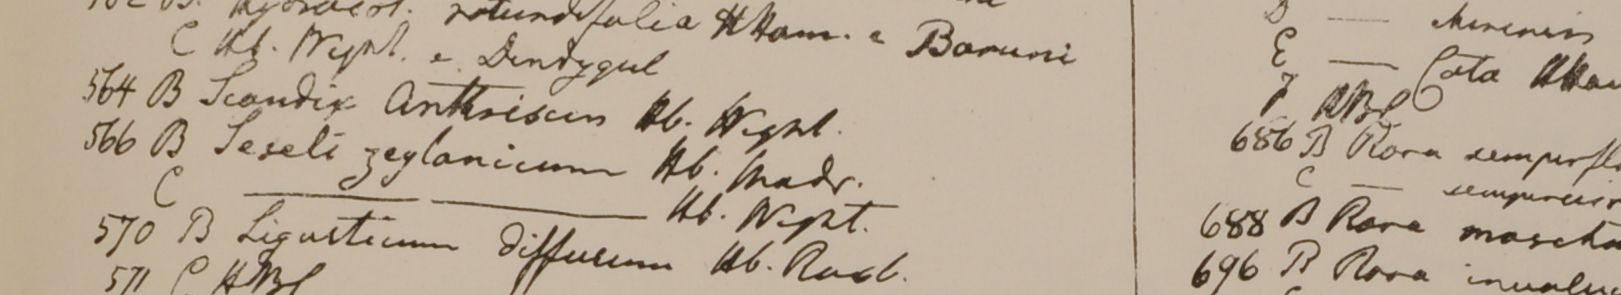 B. Hydrocot. rotundifolia HHam. e Baruni
C Hb. Wight. e Dindygul
564 B Scandix Anthriscus Hb. Wight.
566 B Seseli zeylanicum Hb. Madr.
C ———— Hb. Wight.
570 B Ligusticum diffusum Hb. Roxb.
571 C HBC
D ——
E —— Cota
F HBC
686 B Rosa
C ——
688 B Rosa
696 B Rosa